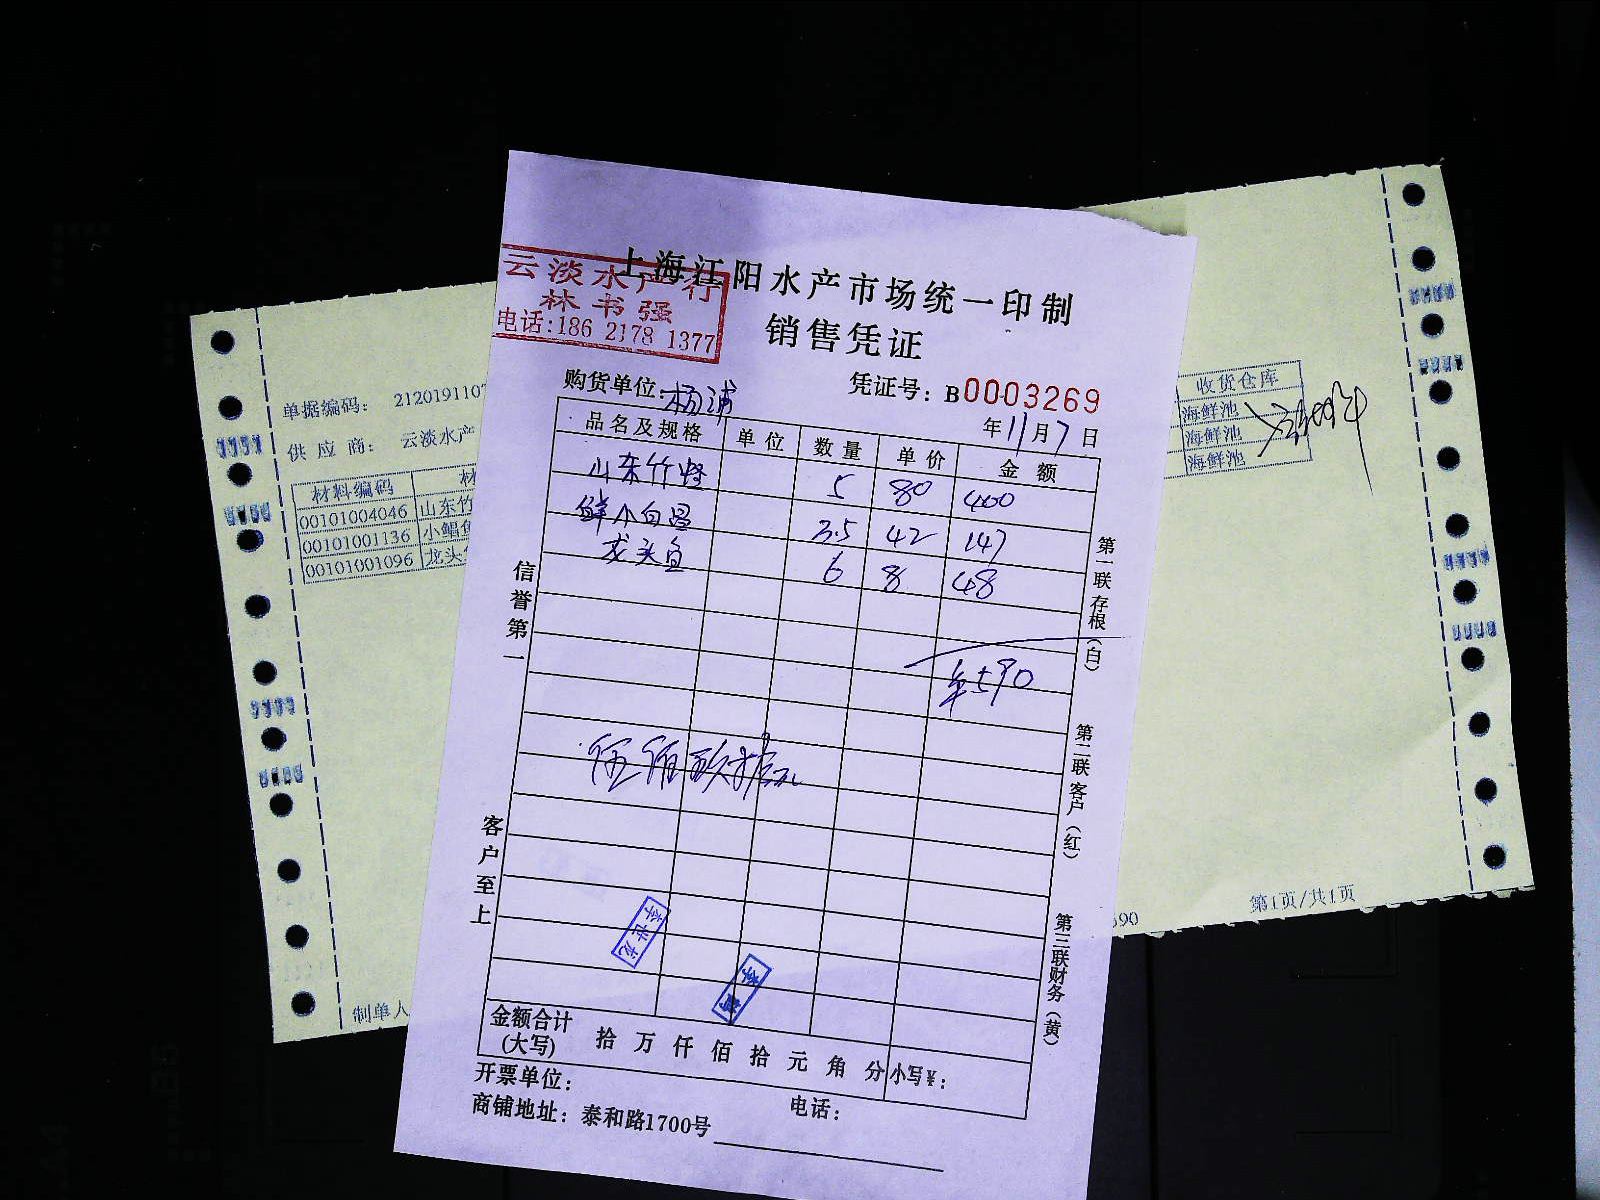 上海江阳水产市场统一印制
销售凭证
云淡水产行
林书强
电话:186 2178 1377
购货单位:杨浦
凭证号:B0003269
年11月7日
品名及规格 单位 数量 单价 金额
山东竹蛏 5 80 400
鲜小白昌 3.5 42 147
龙头鱼 6 8 48
¥590
信誉第一
客户至上
第一联存根(白)
第二联客户(红)
第三联财务(黄)
李世龙
金额合计(大写) 拾万仟佰拾元角分 小写¥:
开票单位:
电话:
商铺地址:泰和路1700号
单据编码: 2120191107
供应商: 云淡水产
材料编码
00101004046 山东竹
00101001136 小鲳鱼
00101001096 龙头
收货仓库
海鲜池
海鲜池
海鲜池
制单人
590
第1页/共1页